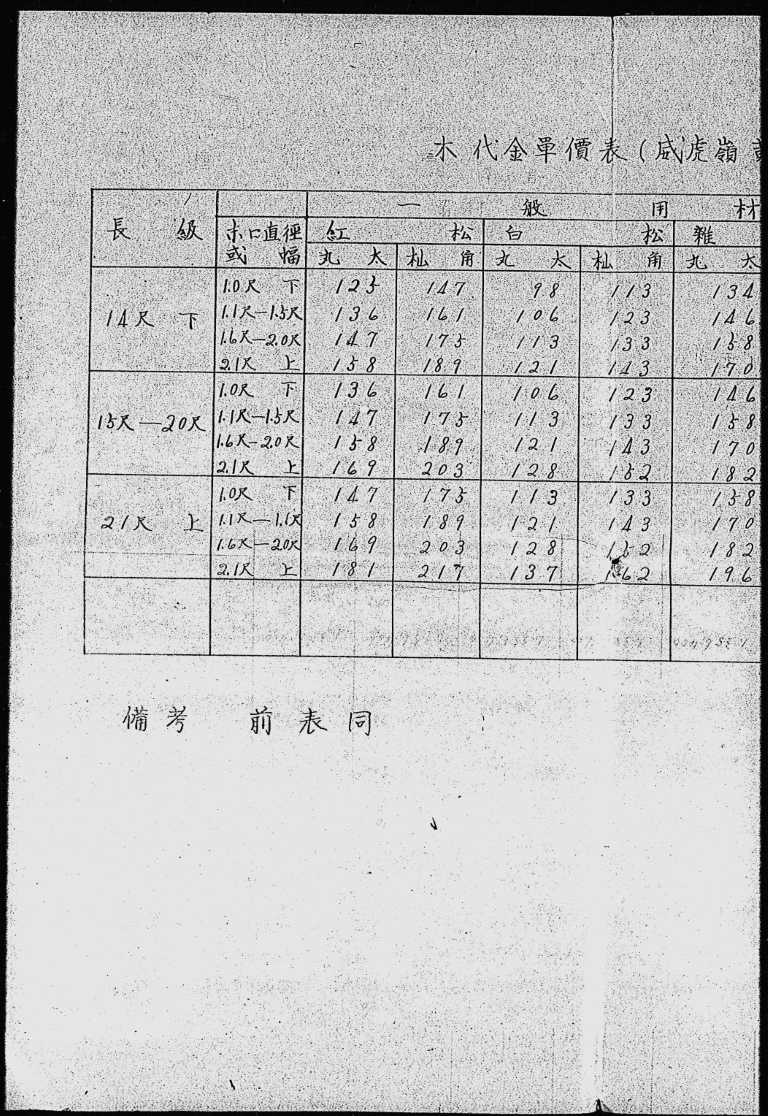 木代金單價表(咸虎嶺
長級 木口直徑或幅 一般用材
紅松 白松 雜
丸太 杣角 丸太 杣角 丸太
14尺下 1.0尺下 125 147 98 113 134
1.1尺—1.5尺 136 161 106 123 146
1.6尺—2.0尺 147 175 113 133 158
2.1尺上 158 189 121 143 170
15尺—20尺 1.0尺下 136 161 106 123 146
1.1尺—1.5尺 147 175 113 133 158
1.6尺—2.0尺 158 189 121 143 170
2.1尺上 169 203 128 152 182
21尺上 1.0尺下 147 175 113 133 158
1.1尺—1.1尺 158 189 121 143 170
1.6尺—2.0尺 169 203 128 152 182
2.1尺上 181 217 137 162 196
備考 前表同